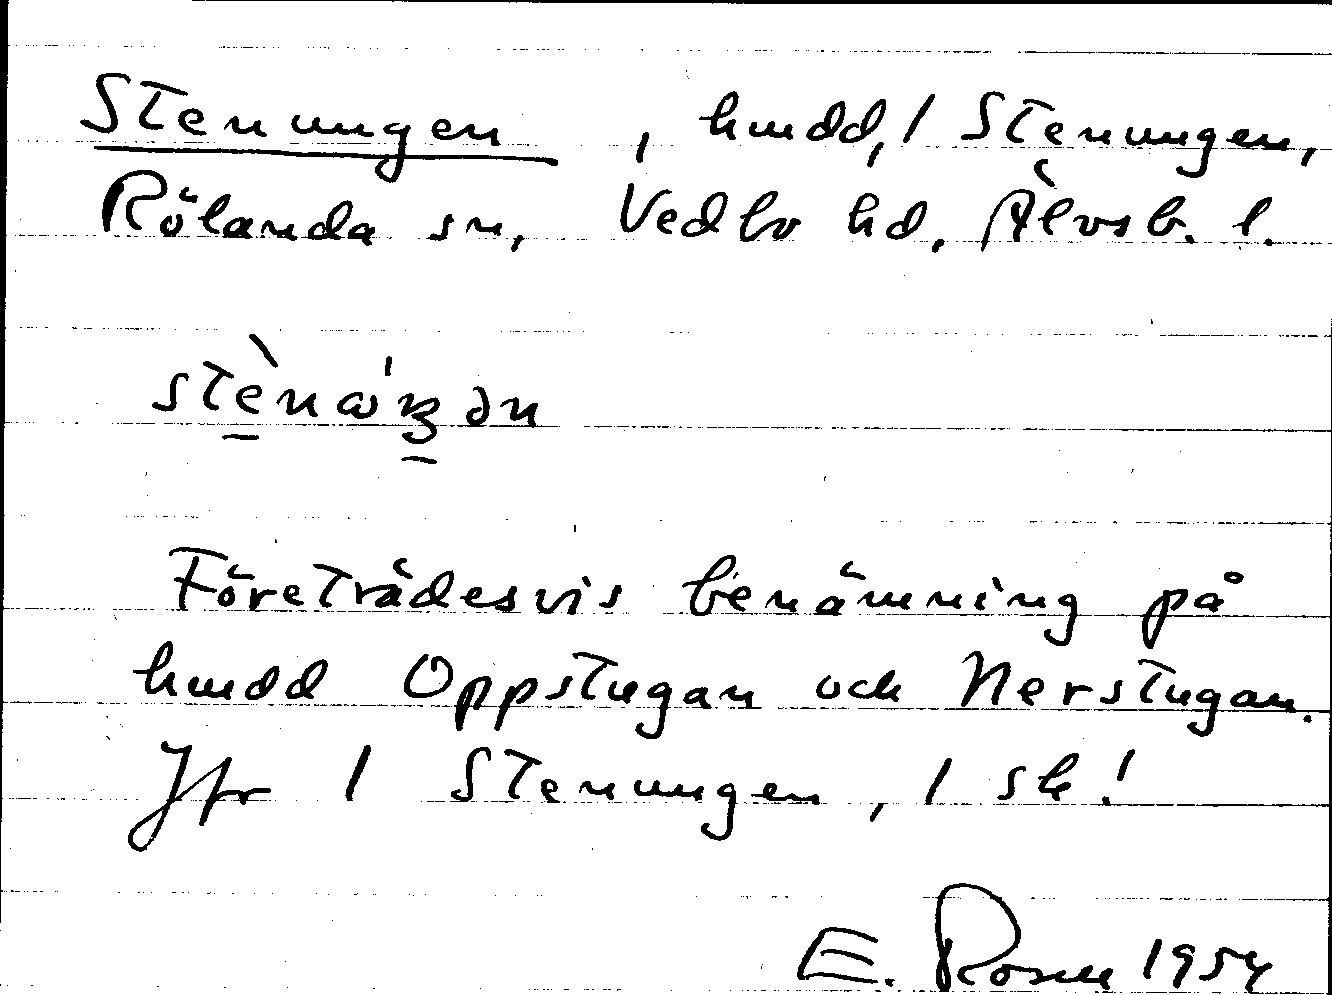 Stenungen, hmdd, / Stenungen,
Rölanda sn, Vedbo hd, Älvsb. l.
Företrädesvis benämning på
hmdd Oppstugan och Nerstugan.
Jfr / Stenungen, / sk!
E. Rosell 1954